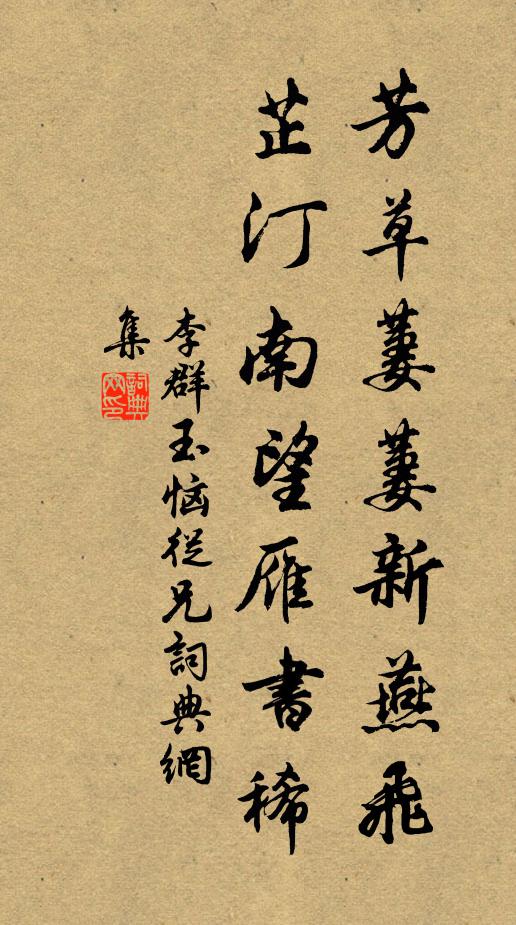 芳草萋萋新燕飛
芷汀南望雁書稀
李群玉恼從兄詞典網
集
詞典
网印